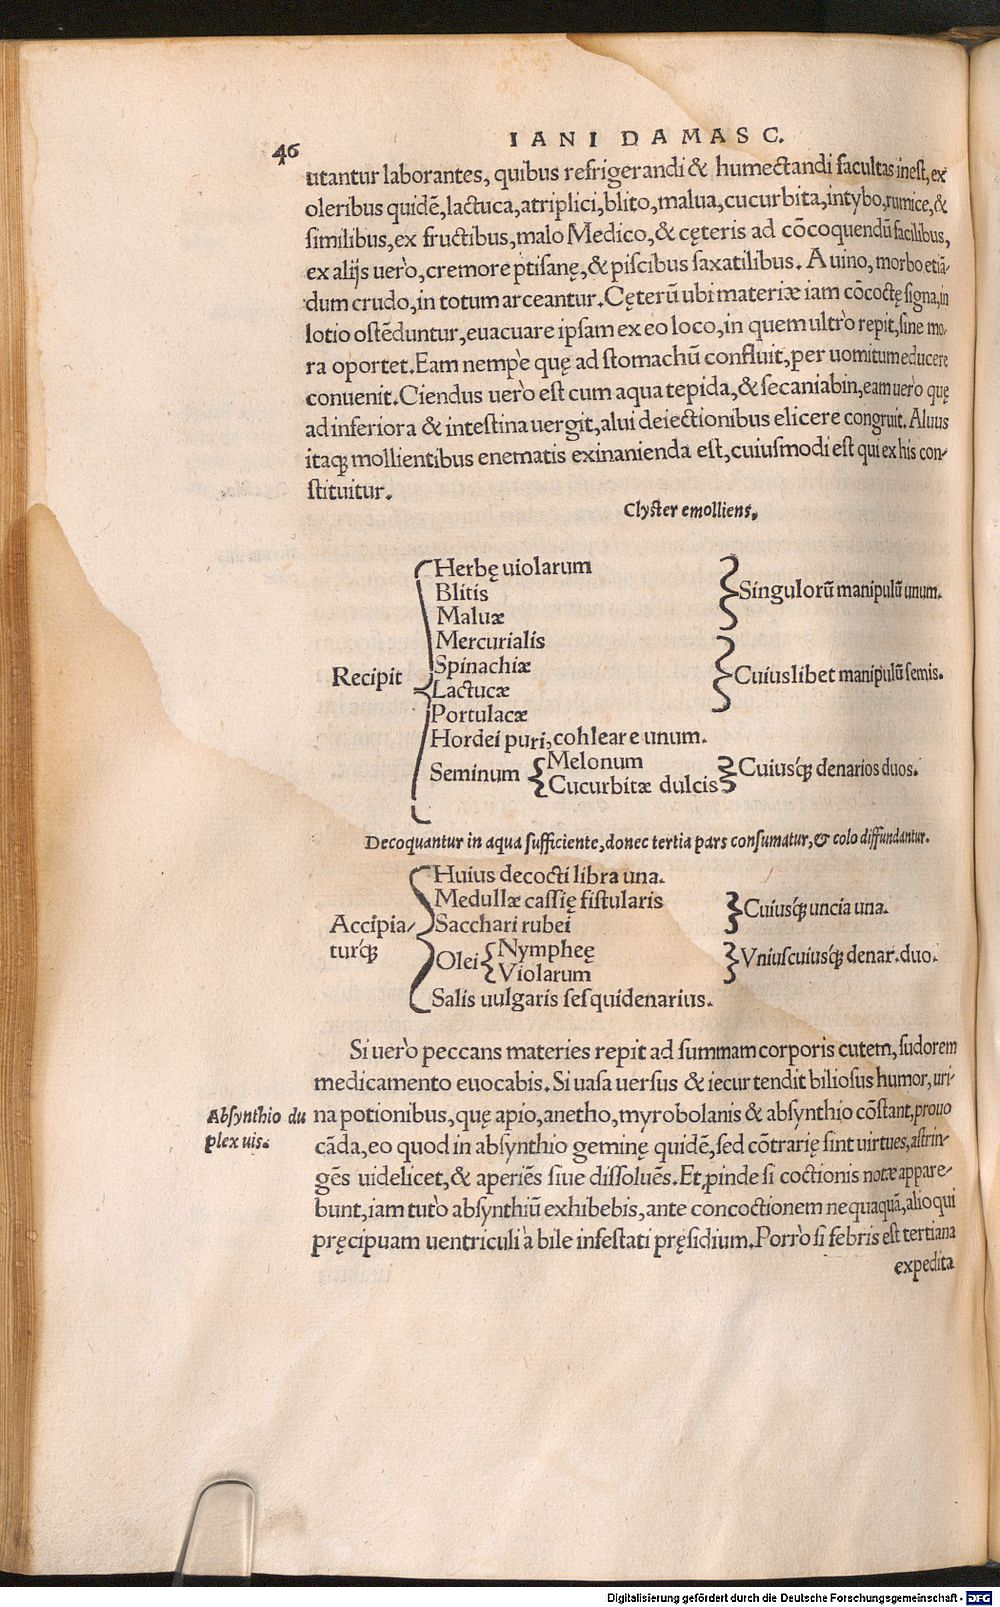 46
IANI DAMASC.
utantur laborantes, quibus refrigerandi & humectandi facultas inest, ex
oleribus quidē, lactuca, atriplici, blito, malua, cucurbita, intybo, rumice, &
similibus, ex fructibus, malo Medico, & cęteris ad cōcoquendū facilibus,
ex alijs uerò, cremore ptisanę, & piscibus saxatilibus. A uino, morbo etiā-
dum crudo, in totum arceantur. Cęterū ubi materiæ iam cōcoctę signa, in
lotio ostēduntur, euacuare ipsam ex eo loco, in quem ultrò repit, sine mo-
ra oportet. Eam nempè quę ad stomachū confluit, per uomitum educere
conuenit. Ciendus uerò est cum aqua tepida, & secaniabin, eam uerò quę
ad inferiora & intestina uergit, alui deiectionibus elicere congruit. Aluus
itaq; mollientibus enematis exinanienda est, cuiusmodi est qui ex his con-
stituitur.
Clyster emolliens.
Herbę uiolarum
Blitis
Maluæ
Singulorū manipulū unum.
Mercurialis
Spinachiæ
Recipit
Lactucæ
Cuiuslibet manipulū semis.
Portulacæ
Hordei puri, cohleare unum.
Seminum
Melonum
Cucurbitæ dulcis
Cuiusq́; denarios duos.
Decoquantur in aqua sufficiente, donec tertia pars consumatur, & colo diffundantur.
Huius decocti libra una.
Medullæ cassię fistularis
Sacchari rubei
Cuiusq́; uncia una.
Accipia-
turq́;
Olei
Nympheę
Violarum
Vniuscuiusq́; denar. duo.
Salis uulgaris sesquidenarius.
Si uerò peccans materies repit ad summam corporis cutem, sudorem
medicamento euocabis. Si uasa uersus & iecur tendit biliosus humor, uri-
Absynthio du
plex uis.
na potionibus, quę apio, anetho, myrobolanis & absynthio cōstant, prouo
cāda, eo quod in absynthio geminę quidē, sed cōtrarię sint uirtues, astrin-
gēs uidelicet, & aperiēs siue dissoluēs. Et ꝓinde si coctionis notæ appare-
bunt, iam tutò absynthiū exhibebis, ante concoctionem nequaquā, alioqui
pręcipuam uentriculi à bile infestati pręsidium. Porrò si febris est tertiana
expedita
Digitalisierung gefördert durch die Deutsche Forschungsgemeinschaft - DFG